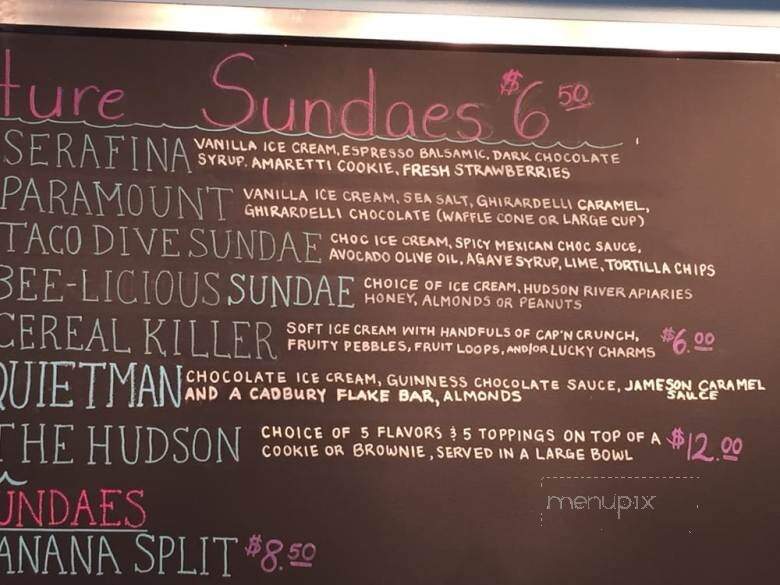 ture Sundaes $6.50
SERAFINA VANILLA ICE CREAM, ESPRESSO BALSAMIC, DARK CHOCOLATE
SYRUP. AMARETTI COOKIE, FRESH STRAWBERRIES
PARAMOUNT VANILLA ICE CREAM, SEA SALT, GHIRARDELLI CARAMEL,
GHIRARDELLI CHOCOLATE (WAFFLE CONE OR LARGE CUP)
TACO DIVE SUNDAE CHOC ICE CREAM, SPICY MEXICAN CHOC SAUCE,
AVOCADO OLIVE OIL, AGAVE SYRUP, LIME, TORTILLA CHIPS
BEE-LICIOUS SUNDAE CHOICE OF ICE CREAM, HUDSON RIVER APIARIES
HONEY, ALMONDS OR PEANUTS
CEREAL KILLER SOFT ICE CREAM WITH HANDFULS OF CAP'N CRUNCH,
FRUITY PEBBLES, FRUIT LOOPS, AND/OR LUCKY CHARMS $6.00
QUIETMAN CHOCOLATE ICE CREAM, GUINNESS CHOCOLATE SAUCE, JAMESON CARAMEL
SAUCE
AND A CADBURY FLAKE BAR, ALMONDS
THE HUDSON CHOICE OF 5 FLAVORS & 5 TOPPINGS ON TOP OF A
COOKIE OR BROWNIE, SERVED IN A LARGE BOWL $12.00
UNDAES
ANANA SPLIT $8.50
menupix